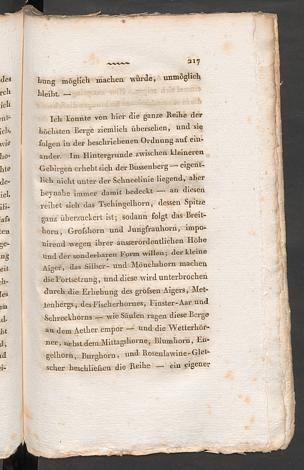 217
bung möglich machen würde, unmöglich
bleibt. —
Ich konnte von hier die ganze Reihe der
höchsten Berge ziemlich übersehen, und sie
folgen in der beschriebenen Ordnung auf ein-
ander. Im Hintergrunde zwischen kleineren
Gebirgen erhebt sich der Bussenberg — eigent-
lich nicht unter der Schneelinie liegend, aber
beynahe immer damit bedeckt — an diesen
reihet sich das Tschingelhorn, dessen Spitze
ganz überzuckert ist; sodann folgt das Breit-
horn, Groſshorn und Jungfrauhorn, impo-
nirend wegen ihrer ausserördentlichen Höhe
und der sonderbaren Form willen; der kleine
Aiger, das Silber- und Mönchshorn machen
die Fortsetzung, und diese wird unterbrochen
durch die Erhebung des gröſsen Aigers, Met-
tenbergs, des Fischerhornes, Finster-Aar und
Schrockhorns — wie Säulen ragen diese Berge
an dem Aether empor — und die Wetterhör-
ner, nebst dem Mittagshorne, Blumhorn, En-
gelhorn, Burghorn, und Rosenlawine-Glet-
scher beschlieſsen die Reihe — ein eigener